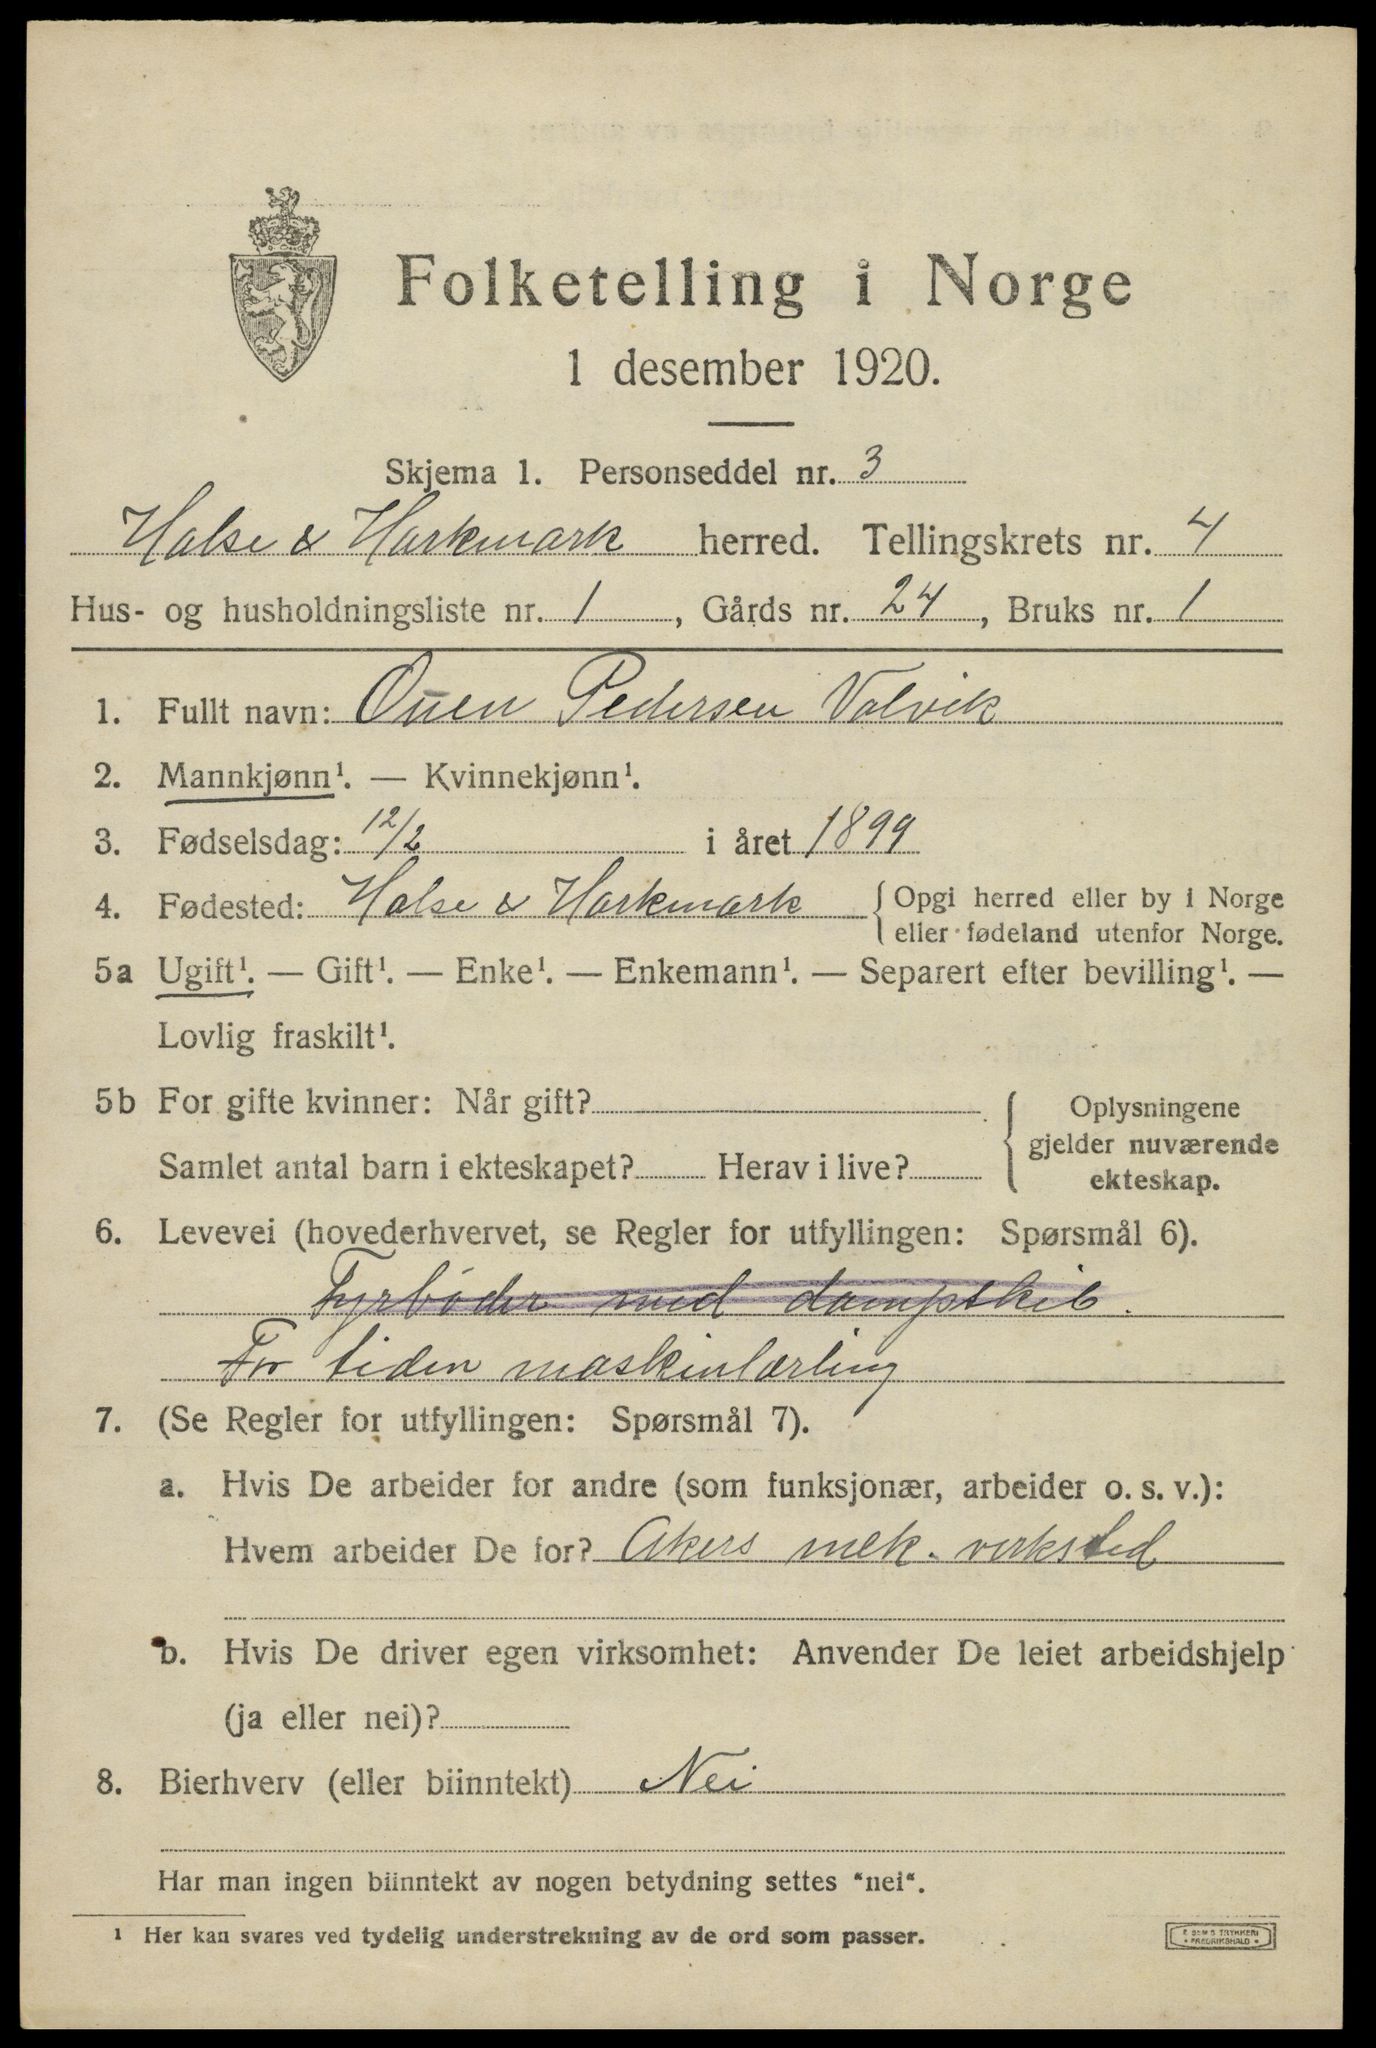 Folketelling i Norge
1 desember 1920.
Skjema 1. Personseddel nr. 3
Halse & Harkmark herred. Tellingskrets nr. 4
Hus- og husholdningsliste nr. 1, Gårds nr. 24, Bruks nr. 1
1. Fullt navn: Ouen Pedersen Valvik
2. Mannkjønn¹. — Kvinnekjønn¹.
3. Fødselsdag: 12/2 i året 1899
4. Fødested: Halse & Harkmark { Opgi herred eller by i Norge
eller fødeland utenfor Norge.
5a Ugift¹. — Gift¹. — Enke¹. — Enkemann¹. — Separert efter bevilling¹. —
Lovlig fraskilt¹.
5b For gifte kvinner: Når gift?
Samlet antal barn i ekteskapet? Herav i live?
{ Oplysningene
gjelder nuværende
ekteskap.
6. Levevei (hovederhvervet, se Regler for utfyllingen: Spørsmål 6).
Fyrbøder med dampskib.
For tiden maskinlærling
7. (Se Regler for utfyllingen: Spørsmål 7).
a. Hvis De arbeider for andre (som funksjonær, arbeider o. s. v.):
Hvem arbeider De for? Akers mek. verksted
b. Hvis De driver egen virksomhet: Anvender De leiet arbeidshjelp
(ja eller nei)?
8. Bierhverv (eller biinntekt) Nei
Har man ingen biinntekt av nogen betydning settes "nei".
¹ Her kan svares ved tydelig understrekning av de ord som passer.
E. SEM'S TRYKKERI
FREDRIKSHALD